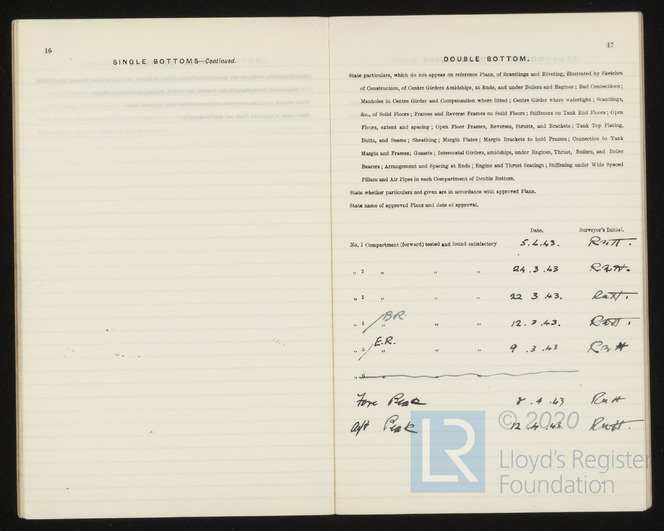 16
SINGLE BOTTOMS—Continued.
17
DOUBLE BOTTOM.
State particulars, which do not appear on reference Plans, of Scantlings and Riveting, illustrated by Sketches
of Construction, of Centre Girders Amidships, at Ends, and under Boilers and Engines; End Connections;
Manholes in Centre Girder and Compensation where fitted; Centre Girder where watertight; Scantlings,
&c., of Solid Floors; Frames and Reverse Frames on Solid Floors; Stiffeners on Tank End Floors; Open
Floors, extent and spacing; Open Floor Frames, Reverses, Struts, and Brackets; Tank Top Plating,
Butts, and Seams; Sheathing; Margin Plates; Margin Brackets to hold Frames; Connection to Tank
Margin and Frames; Gussets; Intercostal Girders, amidships, under Engines, Thrust, Boilers, and Boiler
Bearers; Arrangement and Spacing at Ends; Engine and Thrust Seatings; Stiffening under Wide Spaced
Pillars and Air Pipes in each Compartment of Double Bottom.
State whether particulars not given are in accordance with approved Plans.
State name of approved Plans and date of approval.
Date. Surveyor's Initial.
No. 1 Compartment (forward) tested and found satisfactory 5.4.43.
„ 2 „ „ „ 24.3.43
„ 3 „ „ „ 22 3 43.
„ 4 „ B.R. „ „ 12.3.43.
„ 5 „ E.R. „ „ 9.3.43
„ 6
Fore Peak 8.4.43
Aft Peak 12.4.43
LR © 2020
Lloyd's Register
Foundation